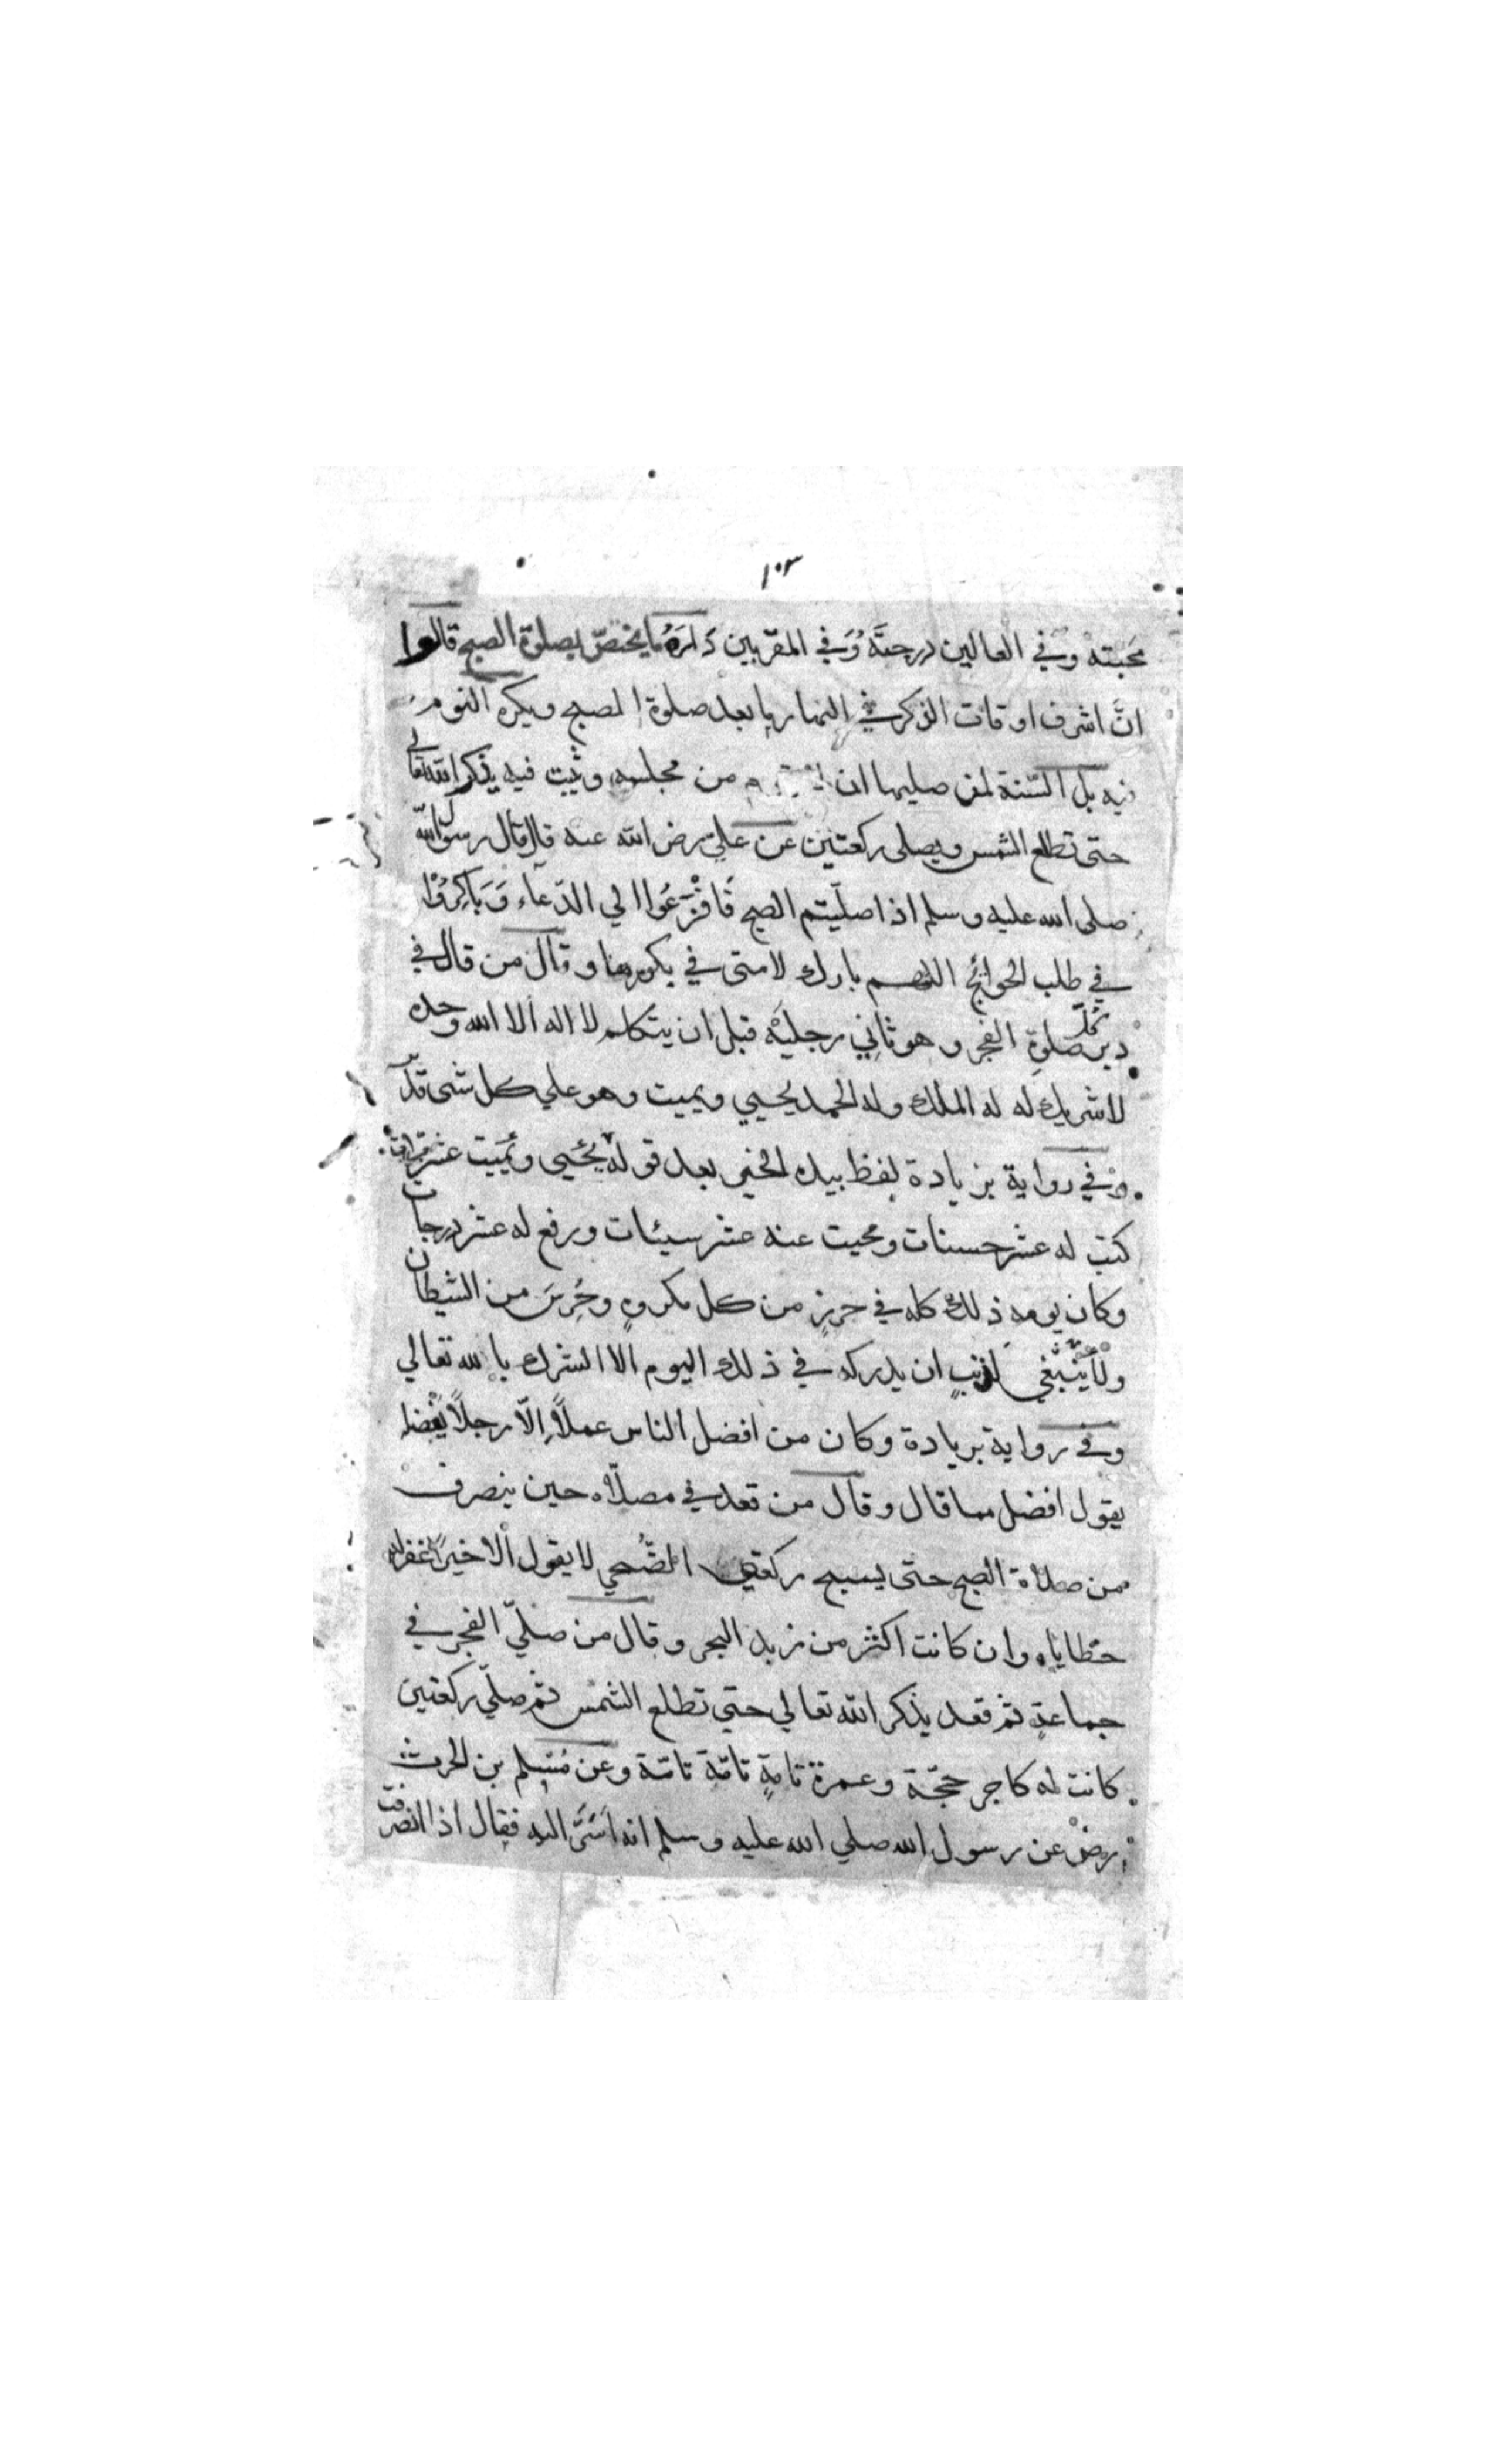 ١٠٣
محبته وفي العالين درجتَه وَفي المقربين دَارَهُ ما يختصّ بصلوة الصبح قالوا
انَّ اشرف اوقات الذكر في النهار ما بعد صلوة الصبح ويكره النوم
فيه بل السّنة لمن صليها ان من مجلسه ويثبت فيه يذكر الله تعالي
حتى تطلع الشمس ويصلى ركعتين عن عليّ رضى الله عنه قال قال رسول الله
صلى الله عليه وسلم اذا صلّيتم الصبح فَافْزَعُوا الي الدّعاء وَبَاكِرُوْا
في طلب الحوائج اللهم بارك لامتى في بكورها وقال من قال في
دبر كلّ صلوةِ الفجر وهو ثاني رجليْه قبل ان يتكلم لا اله الا الله وحده
لا شريك له له الملك وله الحمد يحيي ويميت وهو علي كل شى قدير
وفي رواية بزيادة لفظ بيده الخير بعد قوله يُحيى ويُميت عشر مرات
كتب له عشر حسنات ومحيت عنه عشر سيئات ورفع له عشر درجات
وكان يومه ذلك كله في حرزٍ من كل مكروهٍ وحُرِسَ من الشيطان
ولا ينبغي لذنبٍ ان يدركه في ذلك اليوم الا الشرك بالله تعالي
وفي رواية بزيادة وكان من افضل الناس عملاً اِلّا رجلاً يفضله
يقول افضل مما قال وقال من قعد في مصلّاه حين ينصرف
من صلاة الصبح حتى يسبح ركعتي الضُّحي لا يقول الا خيرا غفر له
خطاياه وان كانت اكثر من زبد البحر وقال من صلّي الفجر في
جماعةٍ ثم قعد يذكر الله تعالي حتي تطلع الشمس ثم صلّي ركعتين
كانت له كاجر حجّة وعمرة تامةٍ تامّة تامّة وعن مُسْلم بن الحرث
رضْ عن رسول الله صلي الله عليه وسلم انه اَسَرَّ اليه فقال اذا انصرفت